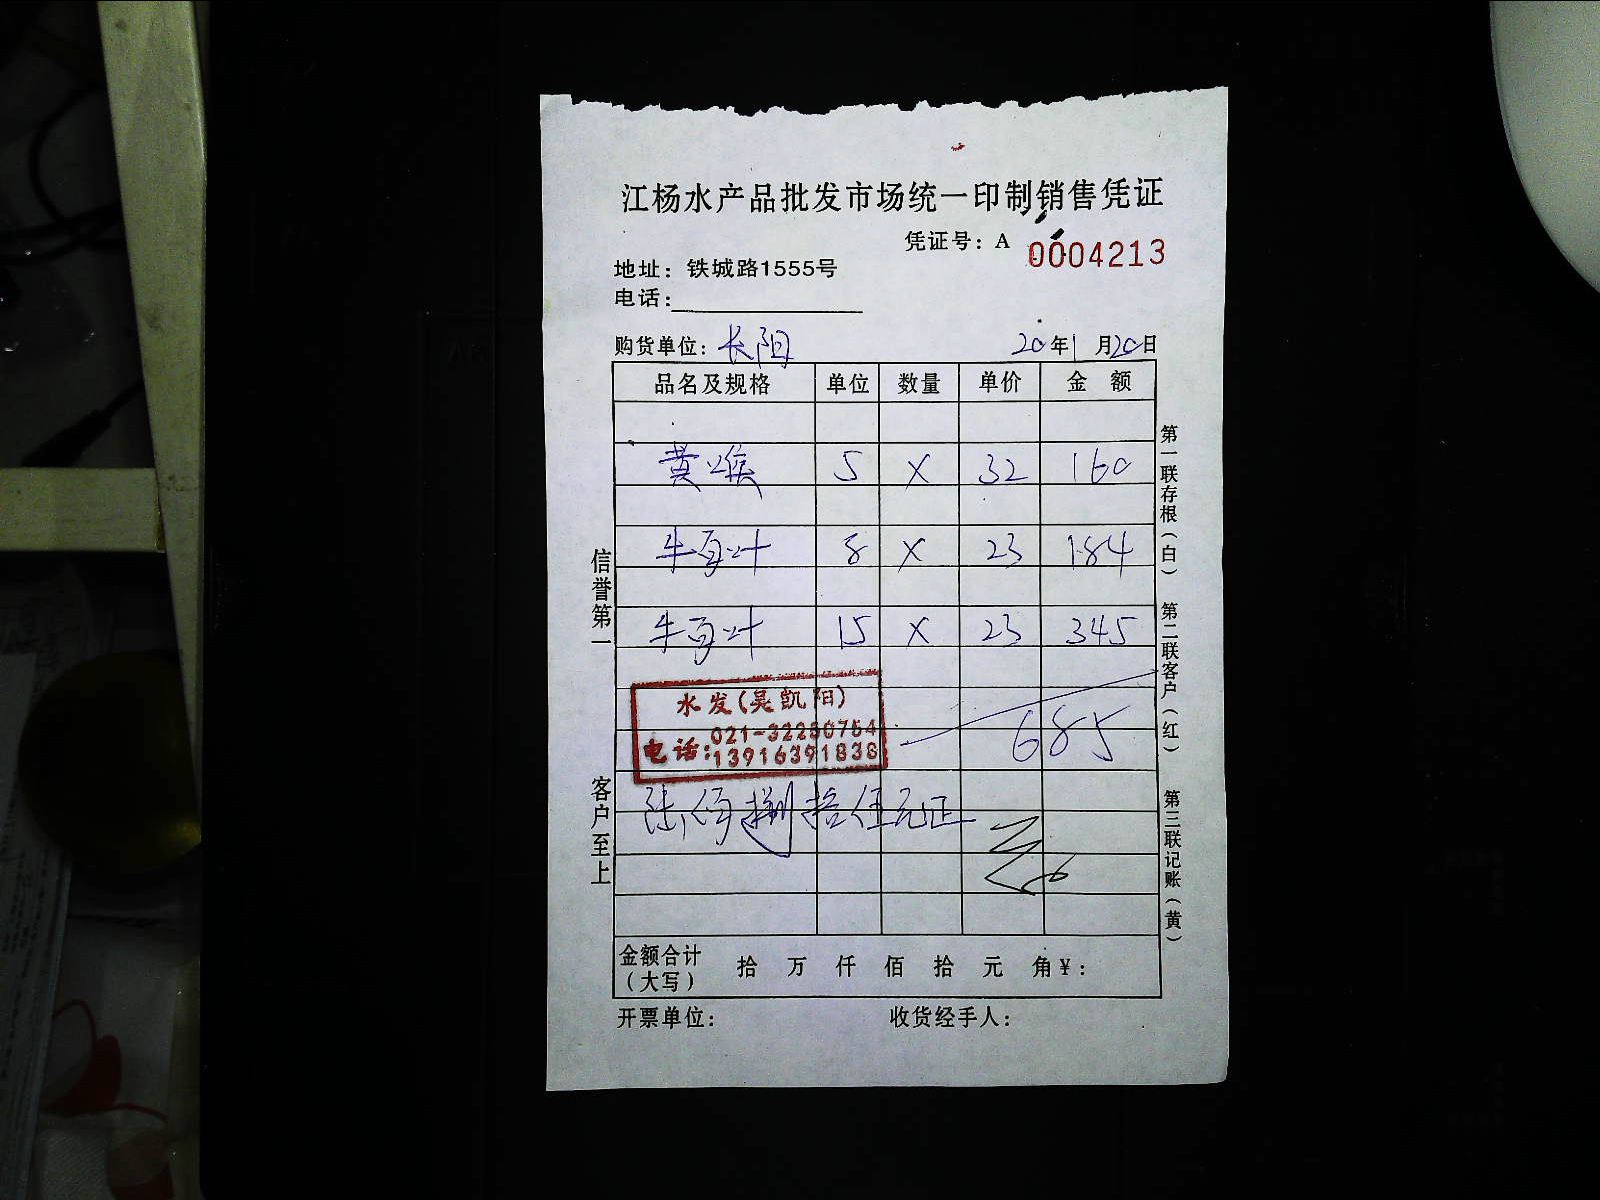 江杨水产品批发市场统一印制销售凭证
凭证号：A 0004213
地址：铁城路1555号
电话：
购货单位：长阳 20年1月20日
品名及规格 单位 数量 单价 金额
黄喉 5 X 32 160
牛百叶 8 X 23 184
牛百叶 15 X 23 345
水发(吴凯阳)
电话：021-32280764
13916391838
685
陆佰捌拾伍元正
金额合计（大写） 拾 万 仟 佰 拾 元 角 ¥：
开票单位： 收货经手人：
信誉第一
客户至上
第一联存根（白） 第二联客户（红） 第三联记账（黄）